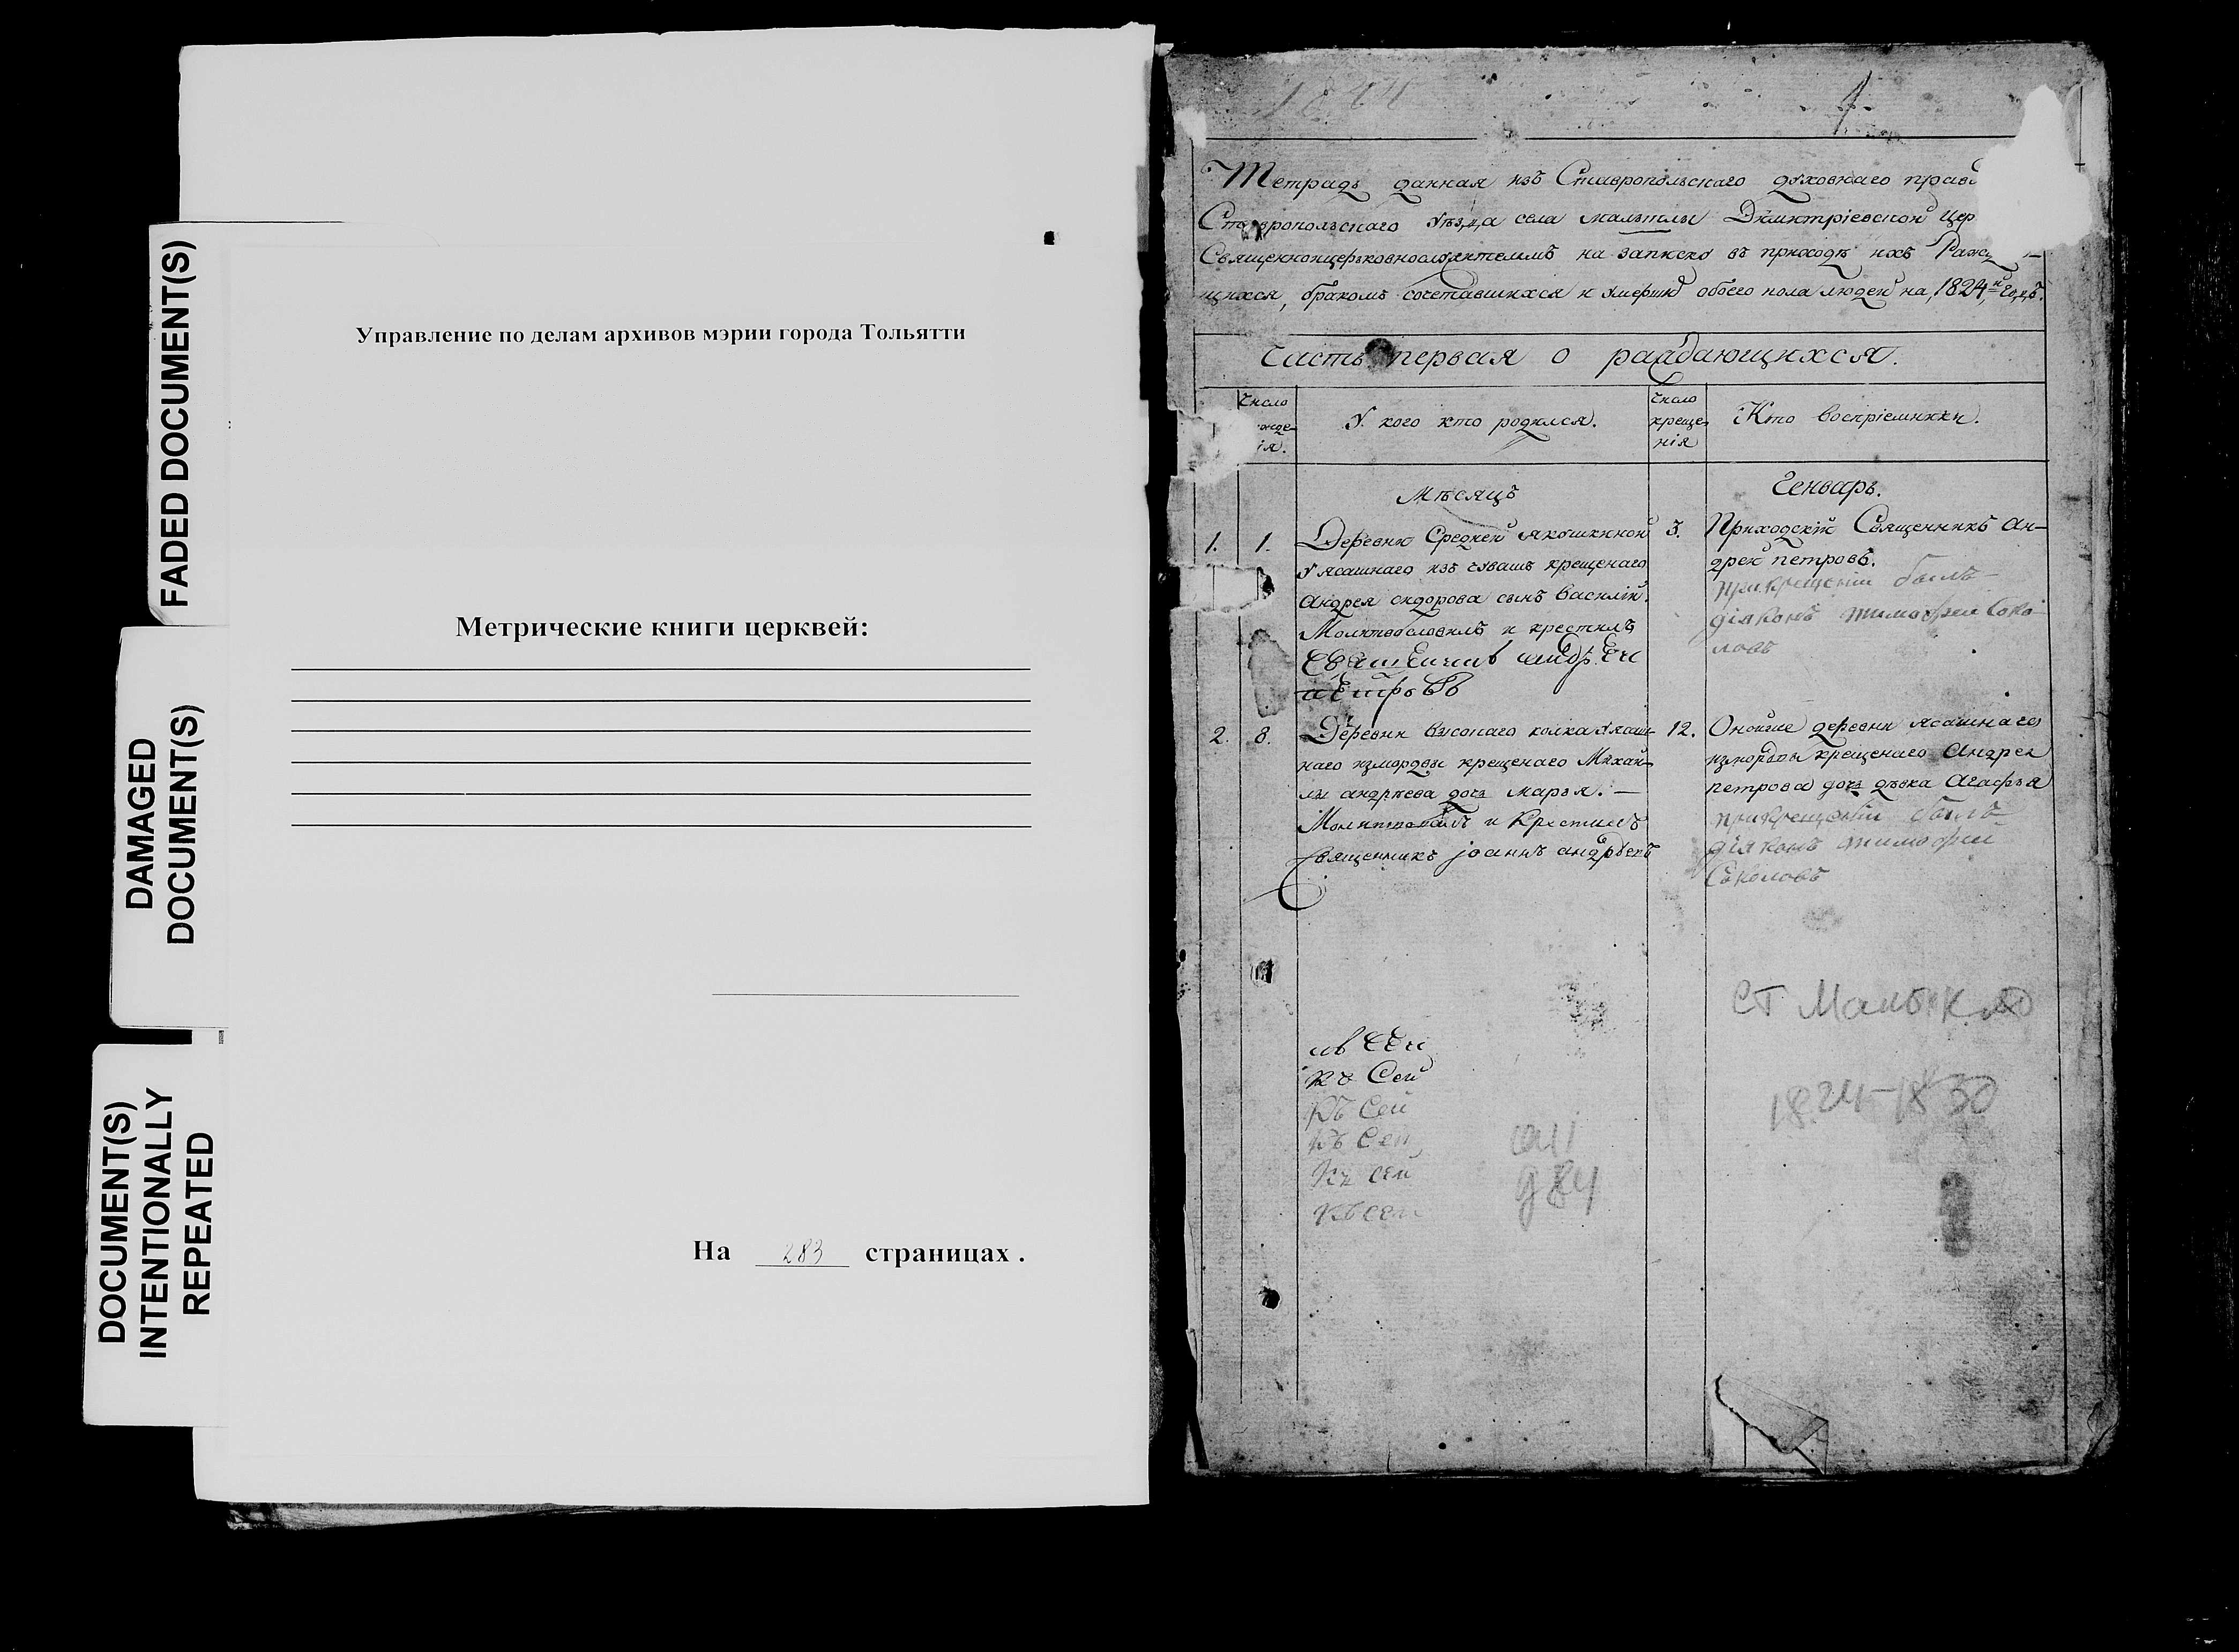 FADED DOCUMENT(S)
DAMAGED
DOCUMENT(S)
DOCUMENT(S)
INTENTIONALLY
REPEATED
Управление по делам архивов мэрии города Тольятти
Метрические книги церквей:
На 283 страницах .
1824
1
Тетрадь данная изъ Ставропольскаго духовнаго
Ставропольскаго уѣзда села Димитріевской цер
Священноцерковнослужителямъ на записку въ приходѣ ихъ
щихся, бракомъ сочетавшихся и обоего пола людей на 1824й годъ.
Часть первая о раждающихся.
Число
ія.
У кого кто родился.
Число
креще-
нія
Кто воспріемники.
Мѣсяцъ
Генварь.
1. 1. Деревни Средней Якушкиной
у ясашнаго изъ чувашъ крещенаго
Андрея Сидорова сынъ Василій.
Молитвословилъ и крестилъ
Священникъ Андрей
Петровъ
3. Приходскій Священникъ Ан-
дрей Петровъ.
при крещеніи былъ
діяконъ Тимофей Соко
ловъ
2. 8. Деревни Высокаго колка у ясаш-
наго измордвы крещенаго Михай-
лы Андрѣева дочь Марья. —
и Крестилъ
Священникъ Іоаннъ
12. Оной же деревни ясашнаго
измордвы крещенаго Андрея
Петрова дочь дѣвка Агафья
при крещеніи былъ
діяконъ Тимофей
Соколовъ
Ст
1824-1830
Къ Сей
Къ Сей
Къ Сей
Къ Сей
Къ Сей
д 84